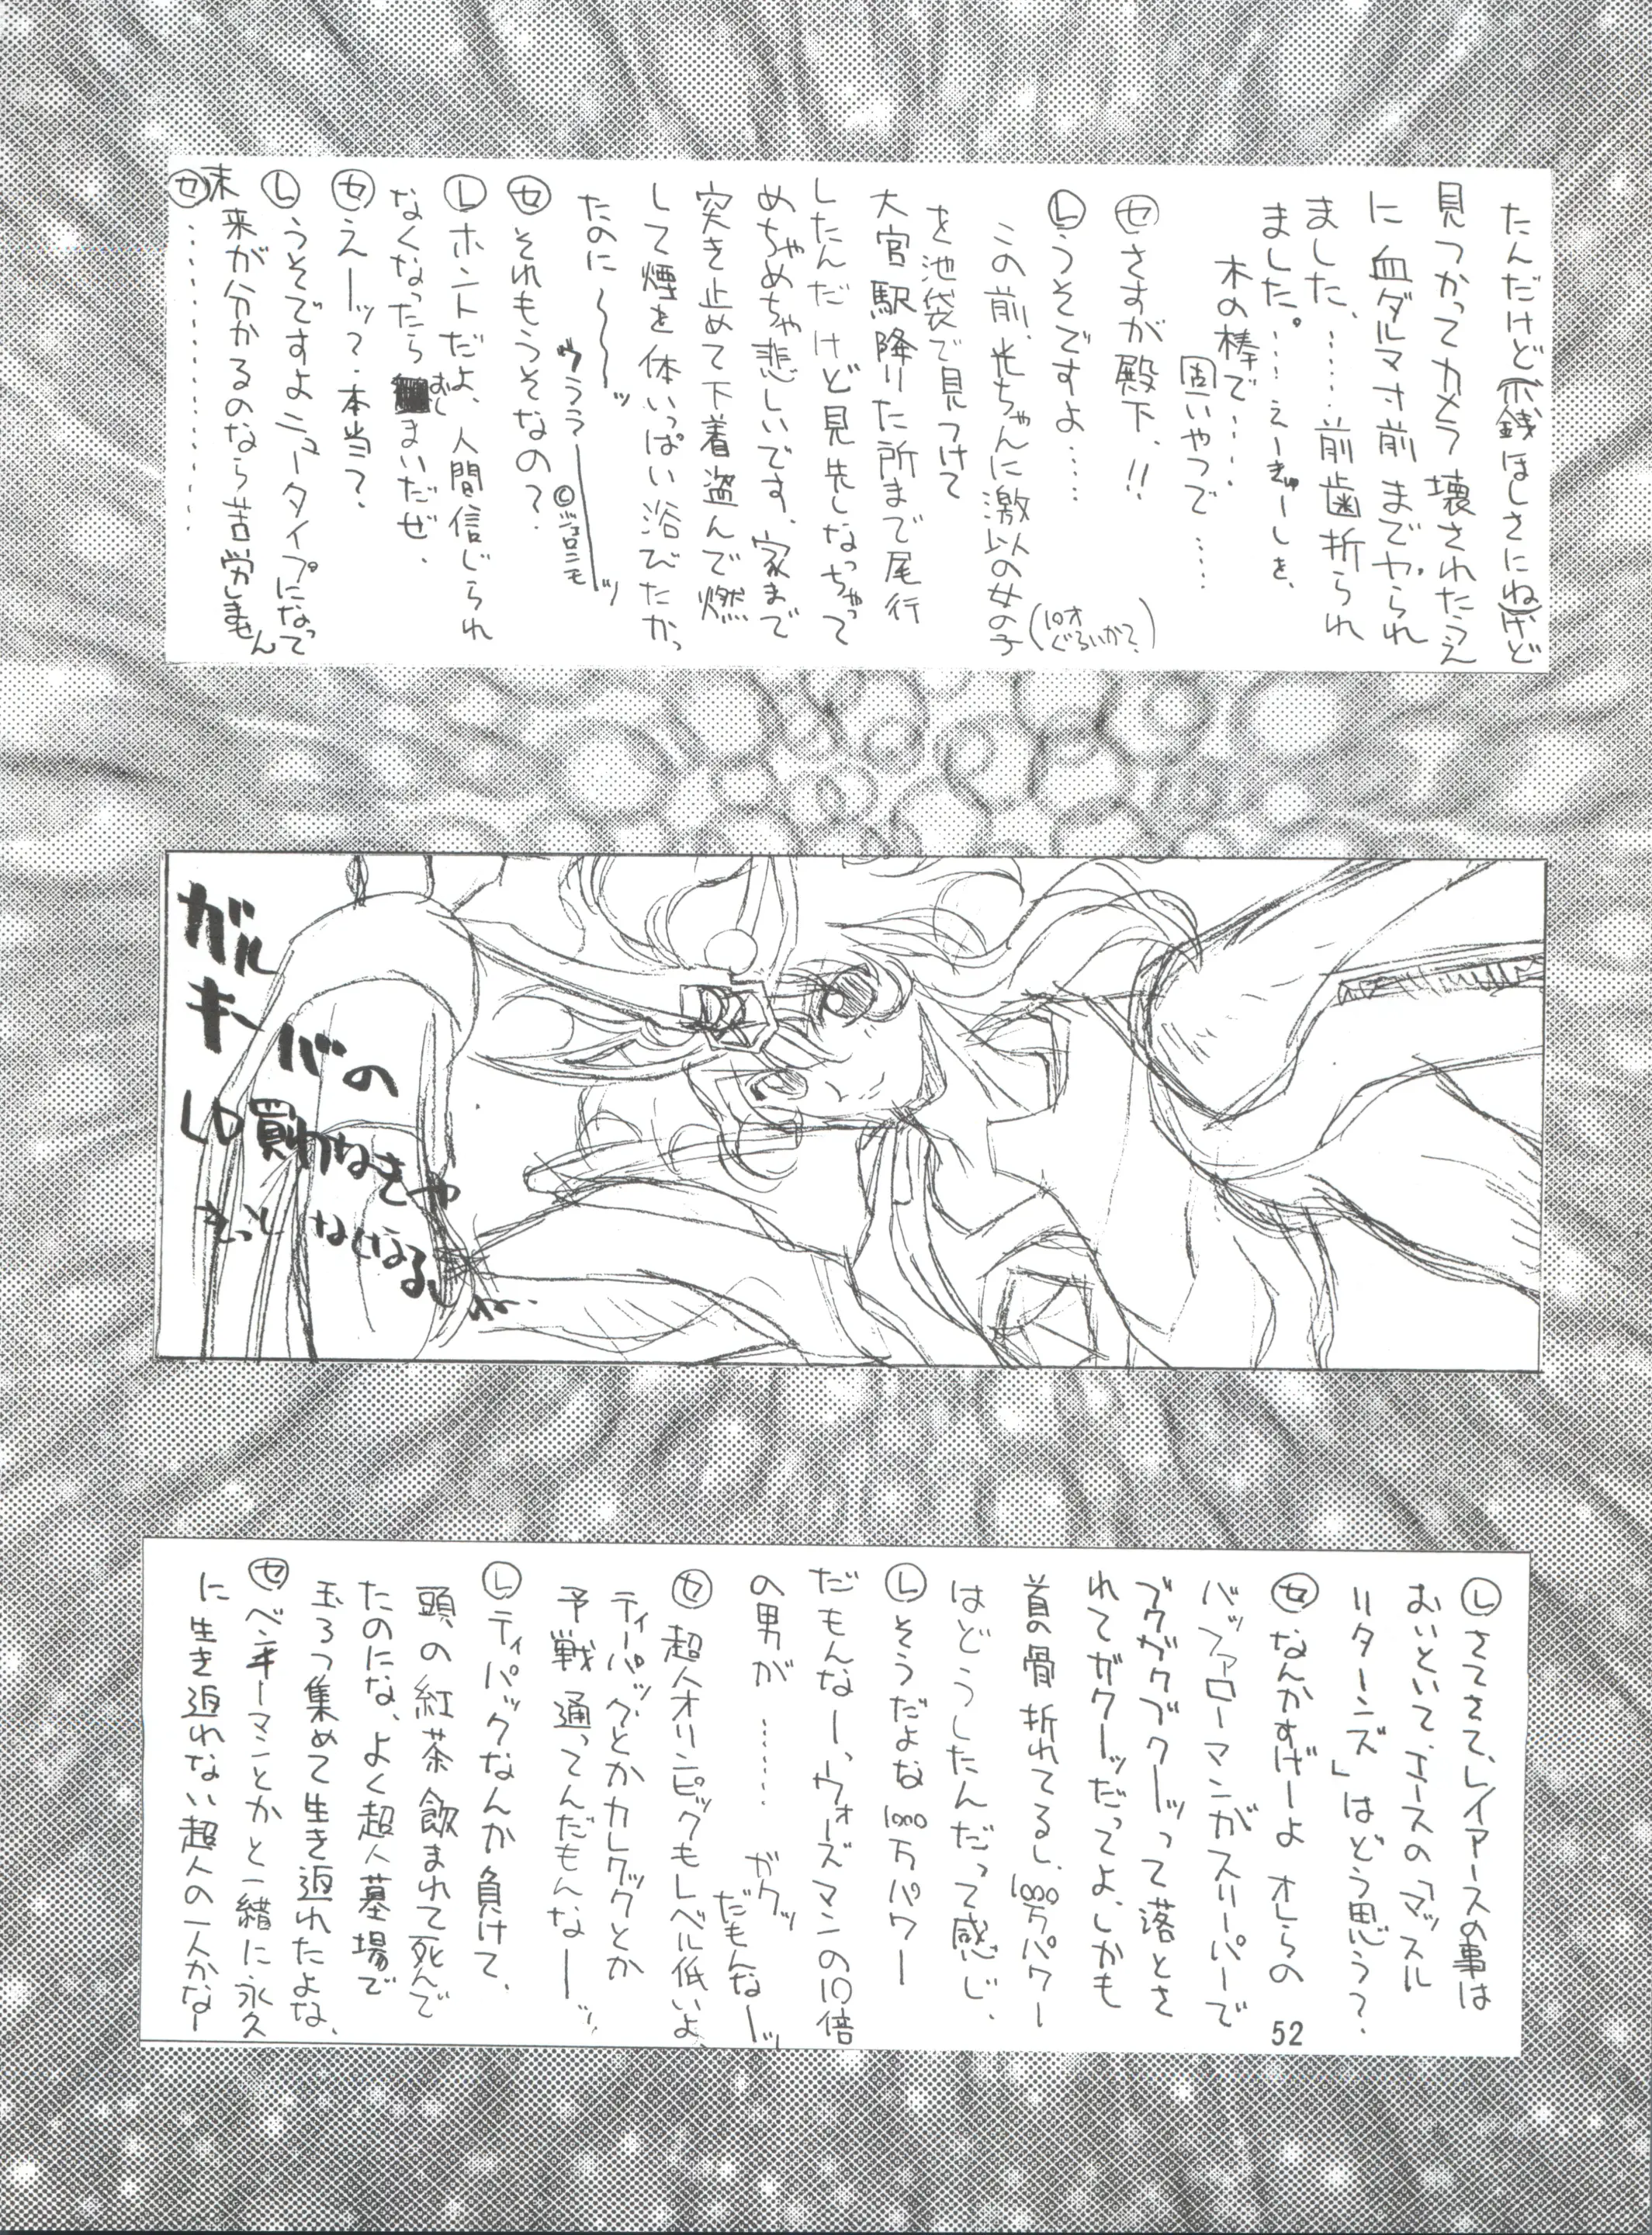 たんだけど(小銭ほしさにね)けど
見つかってカメラ壊されたうえ
に血ダルマ寸前までやられ
ました、……前歯折られ
ました。……えーきゅーしき、
木の棒で……
固いやつで……
㋝さすが殿下、!!
㋹うそですよ……
この前、光ちゃんに激似の女の子
(10才ぐらいかな?)
を池袋で見つけて
大宮駅降りた所まで尾行
したんだけど見失しなっちゃって
めちゃめちゃ悲しいです、家まで
突き止めて下着盗んで燃
して煙を体いっぱい浴びたかっ
たのに〜〜〜ッ
ウララーーーーッ
©ジェロニモ
㋝それもうそなの?
㋹ホントだよ、人間信じられ
なくなったらおしまいだぜ、
㋝えーーッ?本当?
㋹うそですよニュータイプになって
未来が分かるのなら苦労しません
㋝……………
ガル
キーバの
LD買わねきゃ
きっと なくなるしねー
㋹さてさて、レイアースの事は
おいといて、Jースの「マッスル
リターンズ」はどう思う?
㋝なんかすげーよ オレらの
バッファローマンがスリーパーで
ブクガクブクーッって落とさ
れてガクーッだってよ、しかも
首の骨折れてるし、1000万パワー
はどうしたんだって感じ、
㋹そうだよな1000万パワー
だもんなーっウォーズマンの10倍
の男が……ガクッ
だもんなーッ
㋝超人オリンピックもレベル低いよ
ティーパックとかカレクックとか
予戦通ってんだもんなーーッ、
㋹ティパックなんか負けて、
頭の紅茶飲まれて死んで
たのにな、よく超人墓場で
玉3つ集めて生き返れたよな、
㋝ベンキーマンとかと一緒に永久
に生き返れない超人の一人かなー
52